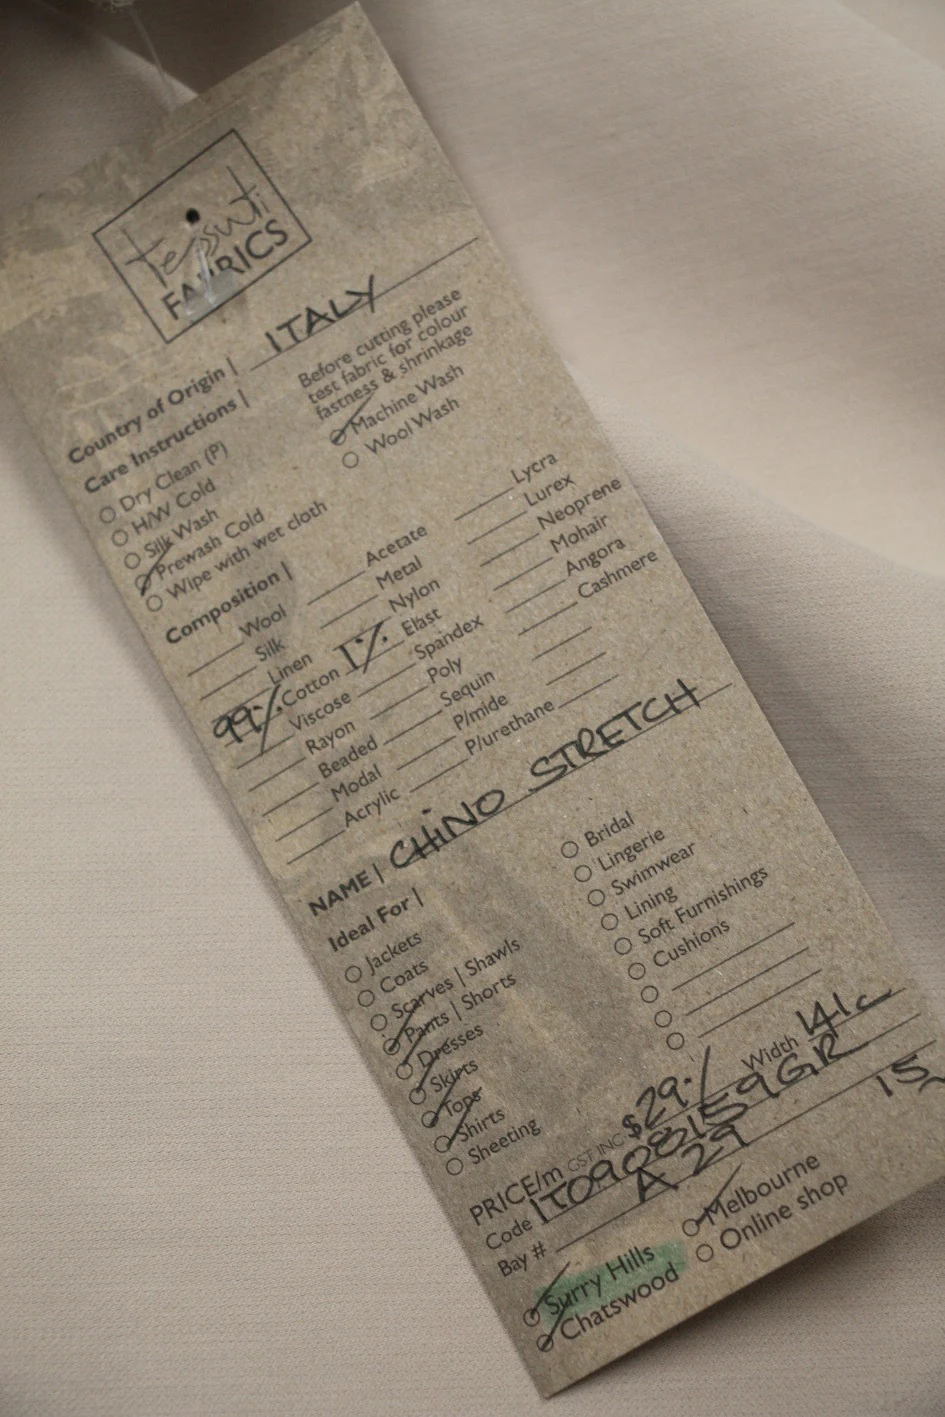 tessuti
FABRICS
Country of Origin | ITALY
Care Instructions |
Before cutting please
test fabric for colour
fastness & shrinkage
Dry Clean (P)
H/W Cold
Silk Wash
Prewash Cold
Wipe with wet cloth
Machine Wash
Wool Wash
Composition |
Wool
Silk
Linen
99% Cotton
Viscose
Rayon
Beaded
Modal
Acrylic
Acetate
Metal
Nylon
1% Elast
Spandex
Poly
Sequin
P/mide
P/urethane
Lycra
Lurex
Neoprene
Mohair
Angora
Cashmere
NAME | CHINO STRETCH
Ideal For |
Jackets
Coats
Scarves | Shawls
Pants | Shorts
Dresses
Skirts
Tops
Shirts
Sheeting
Bridal
Lingerie
Swimwear
Lining
Soft Furnishings
Cushions
PRICE/m GST INC $29 Width 141c
Code ITO908159GR
Bay # A 29 15
Surry Hills
Chatswood
Melbourne
Online shop